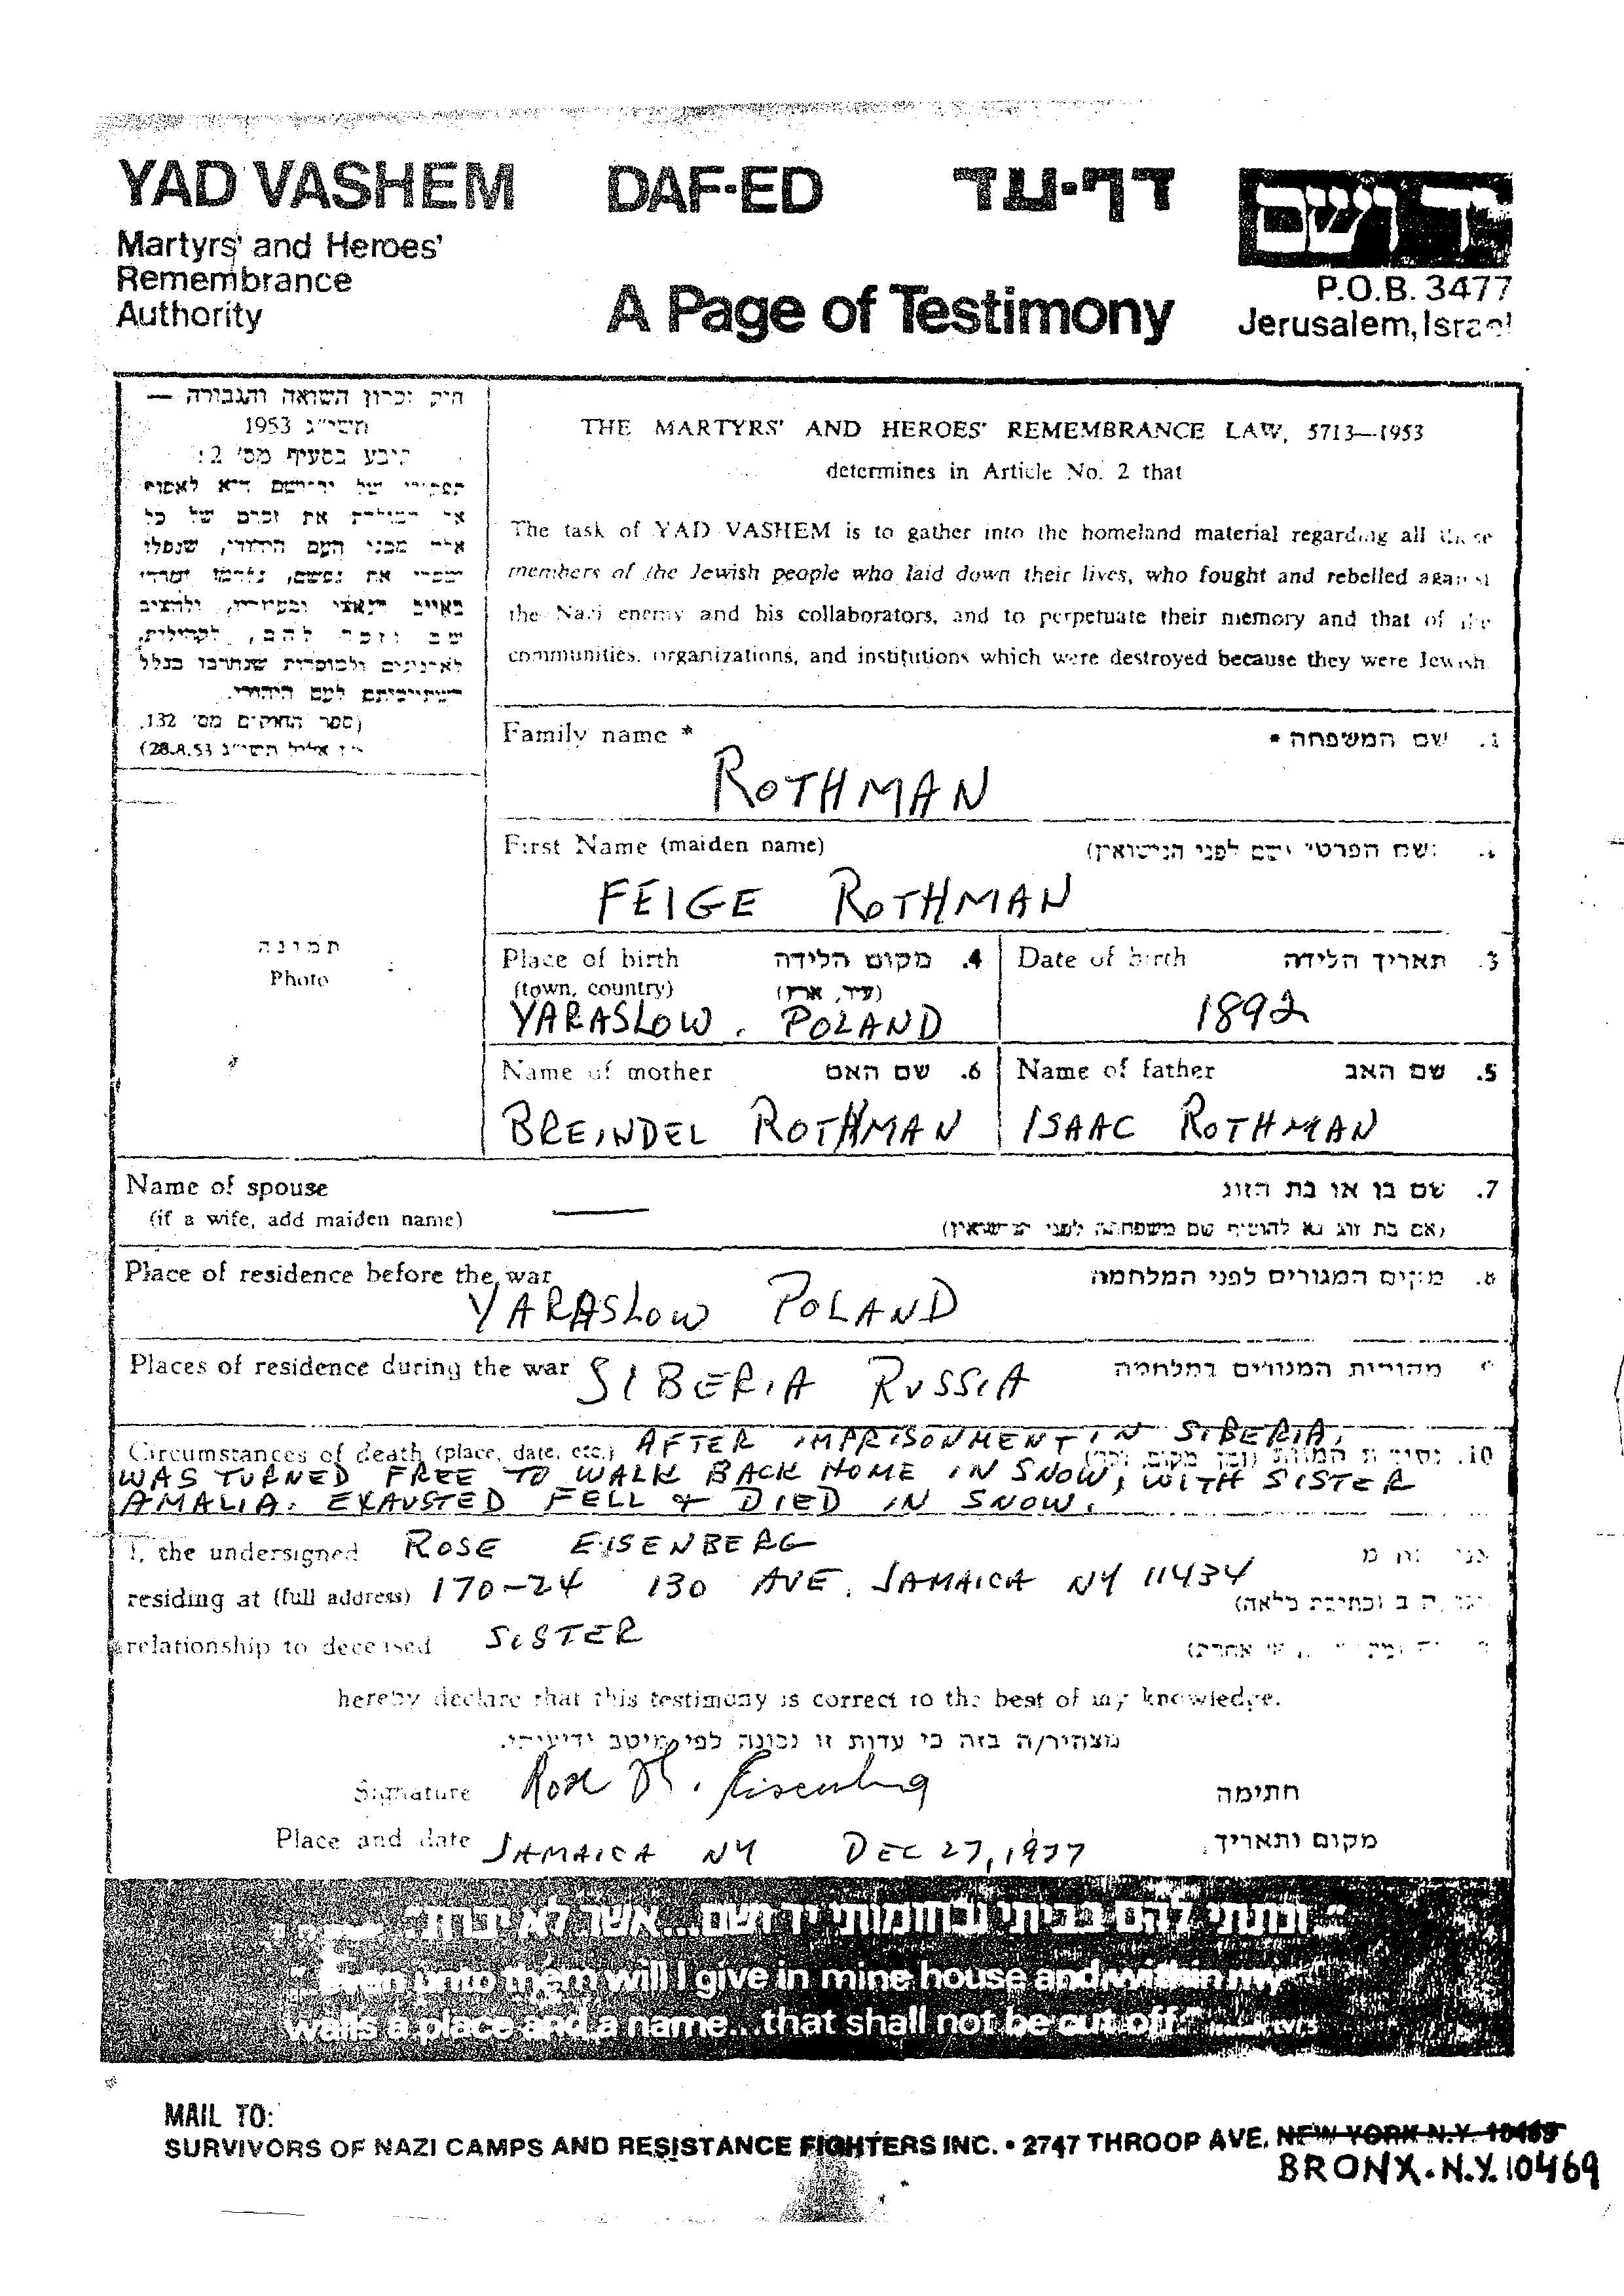 YAD VASHEM DAF-ED דף-עד ידושם
Martyrs' and Heroes'
Remembrance
Authority
A Page of Testimony
P.O.B. 3477
Jerusalem, Israel
חוק זכרון השואה והגבורה —
תשי״ג 1953
קובע בסעיף מס' 2:
תפקידו של יד-ושם הוא לאסוף
אל המולדת את זכרם של כל
אלה מבני העם היהודי, שנפלו
ומסרו את נפשם, נלחמו ומרדו
באויב הנאצי ובעוזריו, ולהציב
שם וזכר להם, לקהילות,
לארגונים ולמוסדות שנחרבו בגלל
השתייכותם לעם היהודי.
(ספר החוקים מס' 132,
י״ז אלול תשי״ג 28.8.53)
THE MARTYRS' AND HEROES' REMEMBRANCE LAW, 5713—1953
determines in Article No. 2 that
The task of YAD VASHEM is to gather into the homeland material regarding all those
members of the Jewish people who laid down their lives, who fought and rebelled against
the Nazi enemy and his collaborators, and to perpetuate their memory and that of the
communities, organizations, and institutions which were destroyed because they were Jewish
Family name * 1. שם המשפחה *
ROTHMAN
First Name (maiden name) השם הפרטי (שם לפני הנישואין)
FEIGE ROTHMAN
תמונה
Photo
Place of birth 4. מקום הלידה
(town, country) (עיר, ארץ)
YARASLOW. POLAND
Date of birth 3. תאריך הלידה
1892
Name of mother 6. שם האם
BREINDEL ROTHMAN
Name of father 5. שם האב
ISAAC ROTHMAN
Name of spouse 7. שם בן או בת הזוג
(if a wife, add maiden name) (אם בת זוג נא להוסיף שם משפחתה לפני הנישואין)
Place of residence before the war 8. מקום המגורים לפני המלחמה
YARASLOW POLAND
Places of residence during the war מקומות המגורים במלחמה
SIBERIA RUSSIA
Circumstances of death (place, date, etc.) 10. נסיבות המוות (זמן, מקום, וכו')
AFTER IMPRISONMENT IN SIBERIA,
WAS TURNED FREE TO WALK BACK HOME IN SNOW, WITH SISTER
AMALIA. EXAUSTED FELL & DIED IN SNOW.
I, the undersigned ROSE EISENBERG
residing at (full address) 170-24 130 AVE. JAMAICA NY 11434
relationship to deceased SISTER
hereby declare that this testimony is correct to the best of my knowledge.
מצהיר/ה בזה כי עדות זו נכונה לפי מיטב ידיעתי.
Signature Rose R. Eisenberg חתימה
Place and date JAMAICA NY DEC 27, 1977 מקום ותאריך
"ונתתי להם בביתי ובחומותי יד ושם... אשר לא יכרת"
"Even unto them will I give in mine house and within my
walls a place and a name...that shall not be cut off"
MAIL TO:
SURVIVORS OF NAZI CAMPS AND RESISTANCE FIGHTERS INC. • 2747 THROOP AVE. NEW YORK N.Y. 10469
BRONX. N.Y. 10469